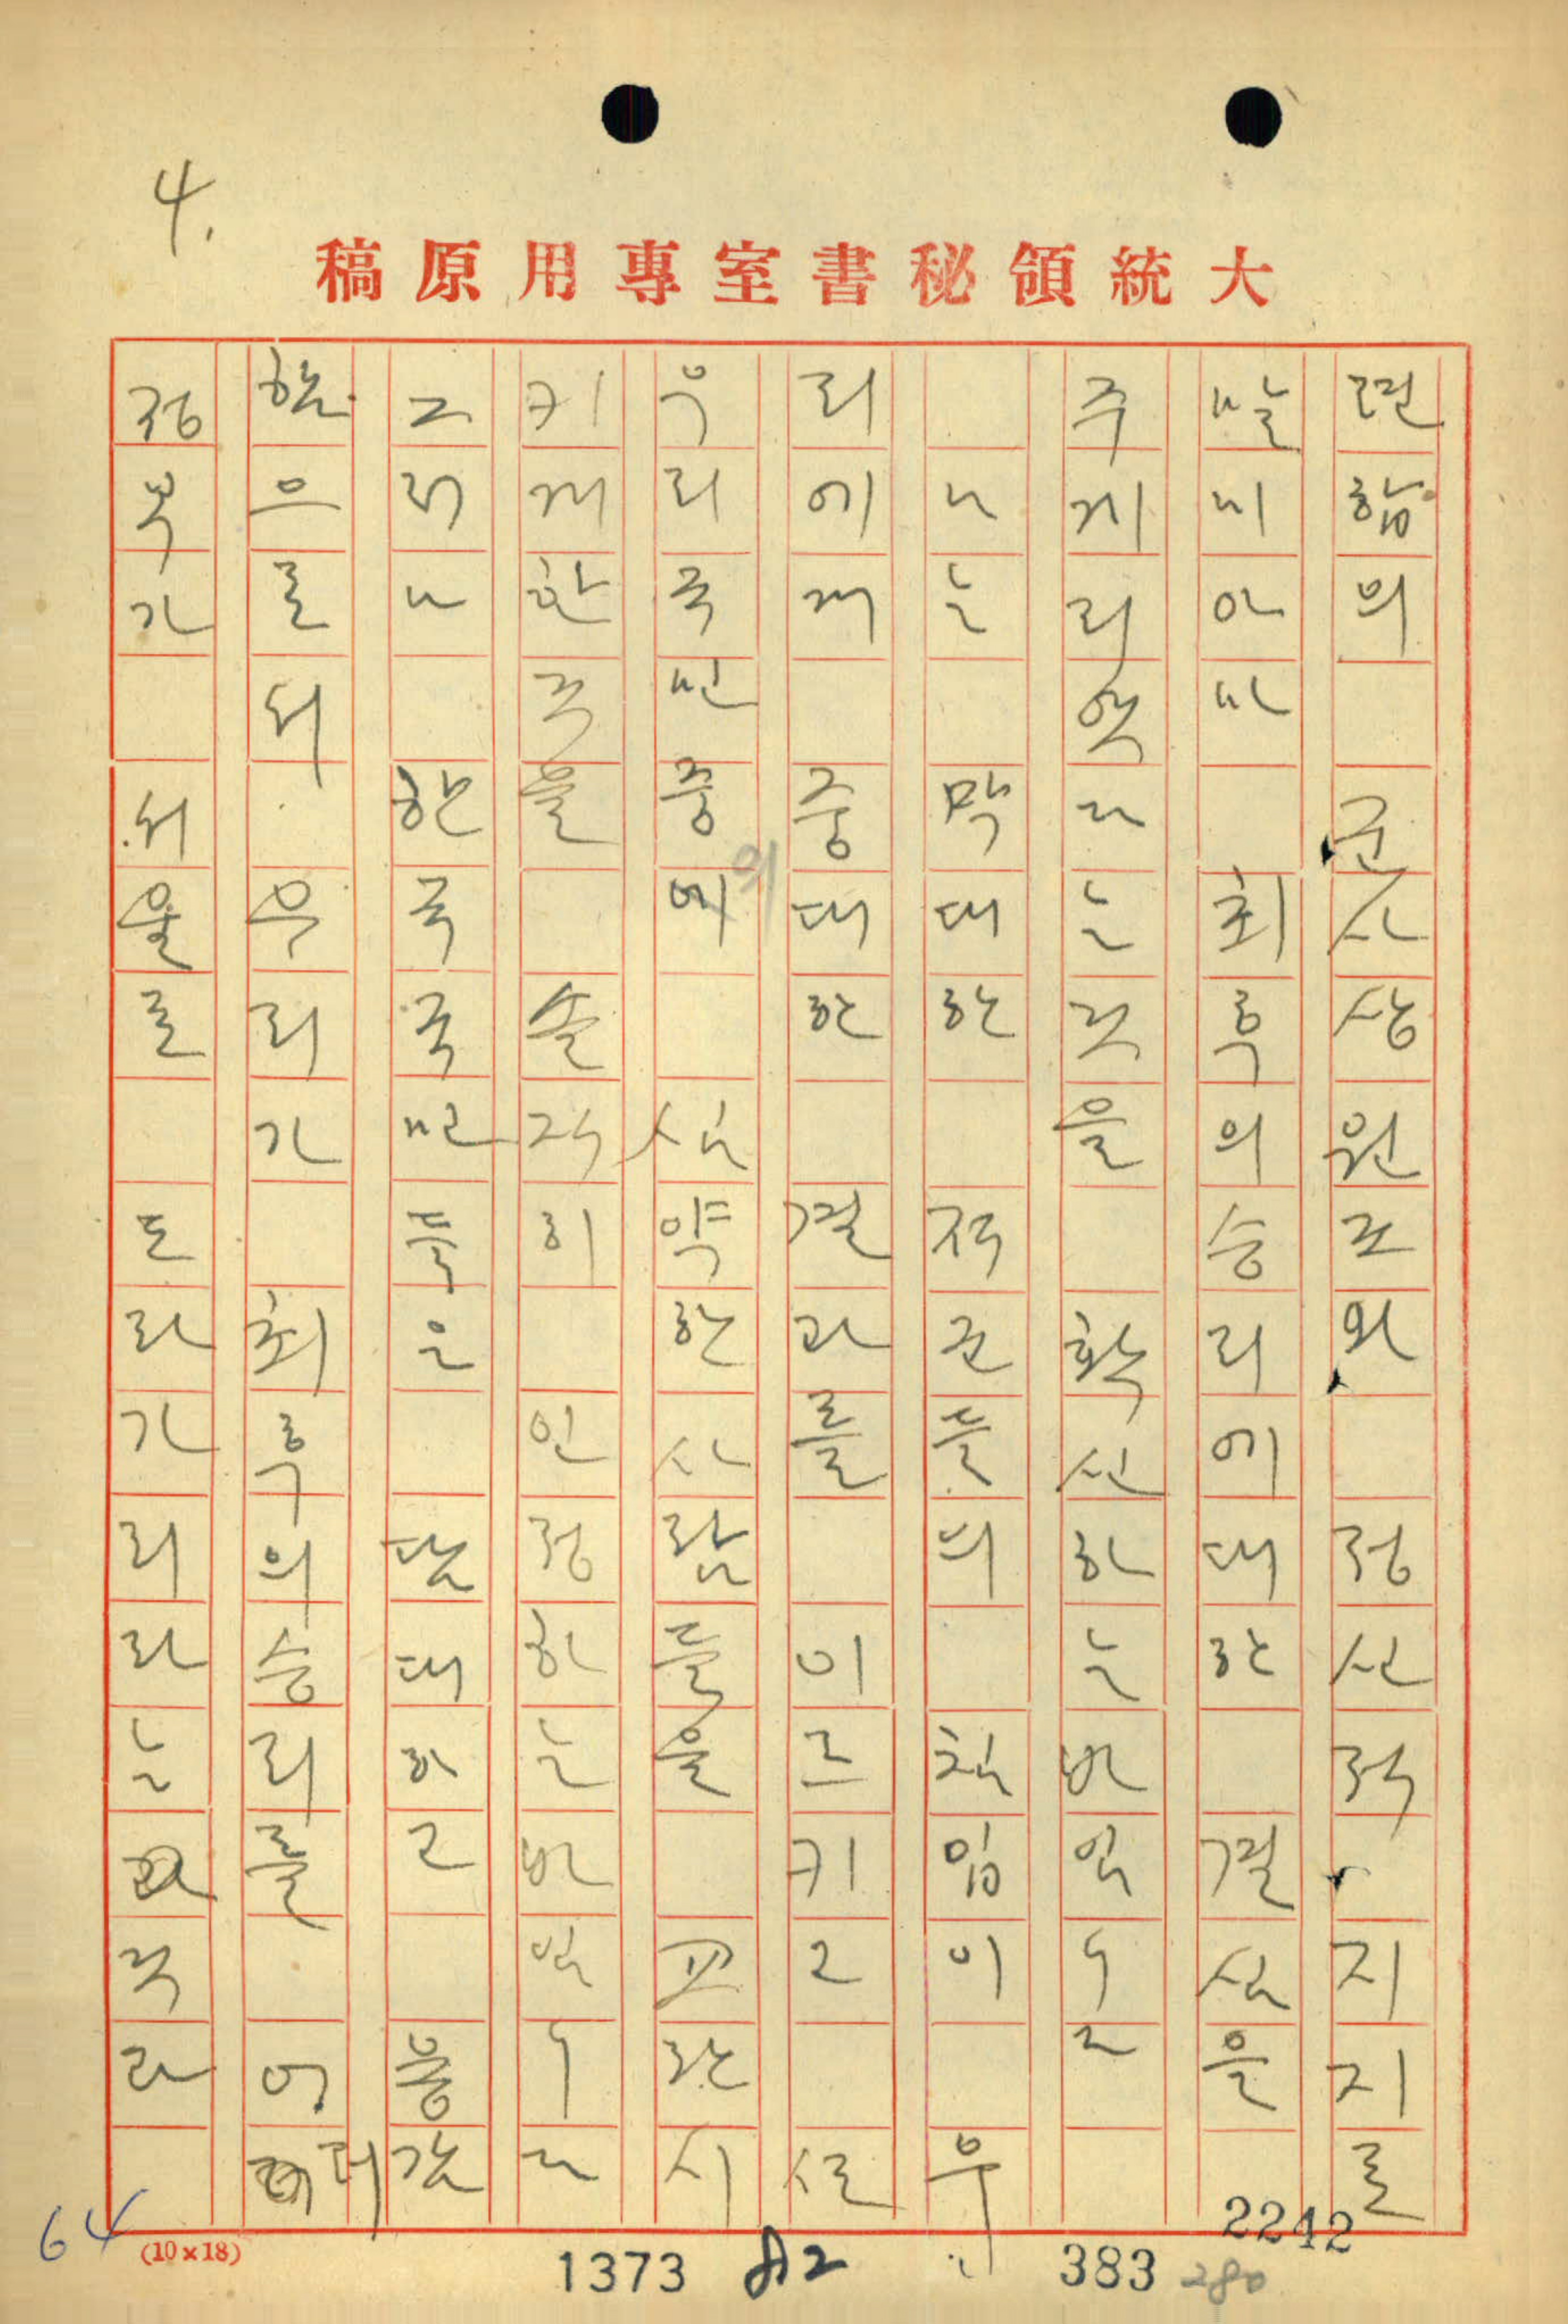 4.
大統領秘書室專用原稿
련합의 군사상원조와 정신적、지지로
말미아마 최후의승리에대한 결심을
주게되엿다는것을 확신하는바임니다
나는 막대한 적군들의 침입이 우
리에게 중대한 결과를 이르키고
우리국민중의 심약한사람들을 교란시
키게한것을 솔직히 인정하는바임니다
그러나 한국국민들은 담대하고 용감
함으로써 우리가 최후의승리를 어더
정부가 서울로 도라가리라는것과
64
(10×18)
1373 82 383 280
2242